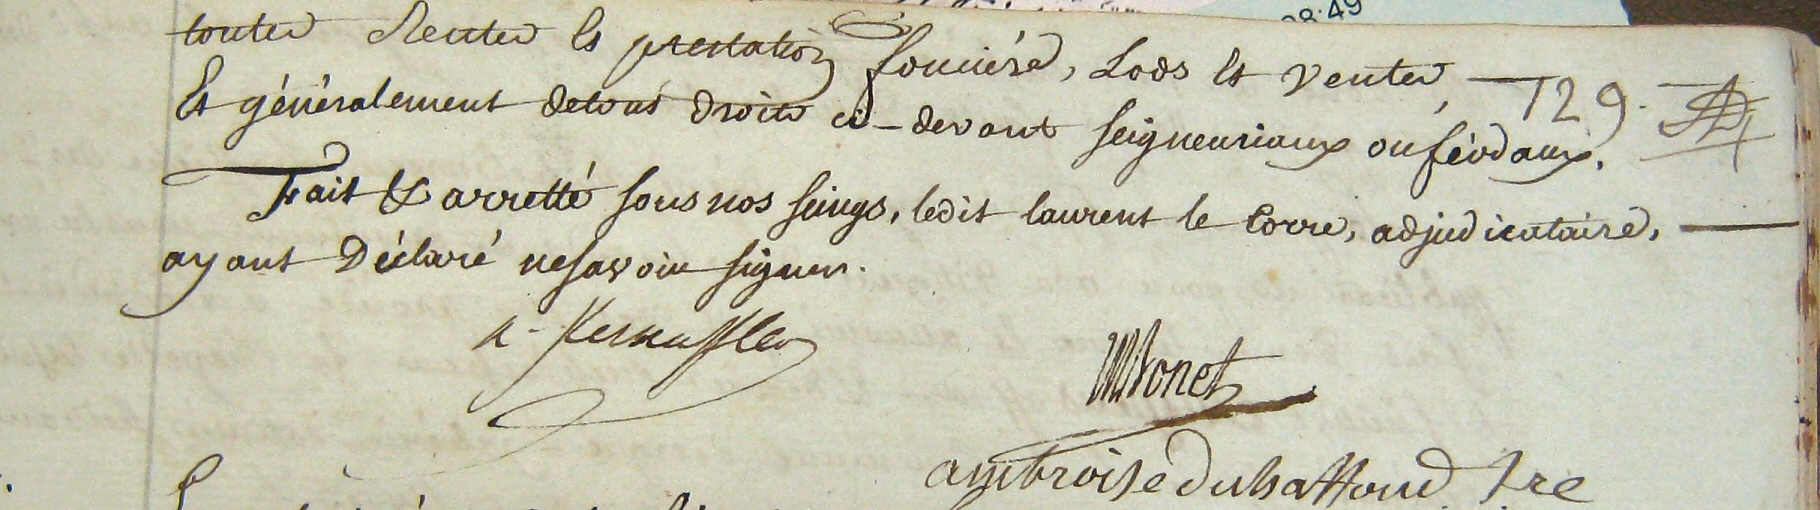 08:49
toutes Rentes & prestation foncière, Lods et ventes
129.
Et généralement detous droits ci-devant seigneuriaux ou féodaux.
Fait & arretté sous nos seings, ledit laurent le Corre, adjudicataire,
ayant Déclaré nesavoir signer.
Monet
ambroise Duhaffond